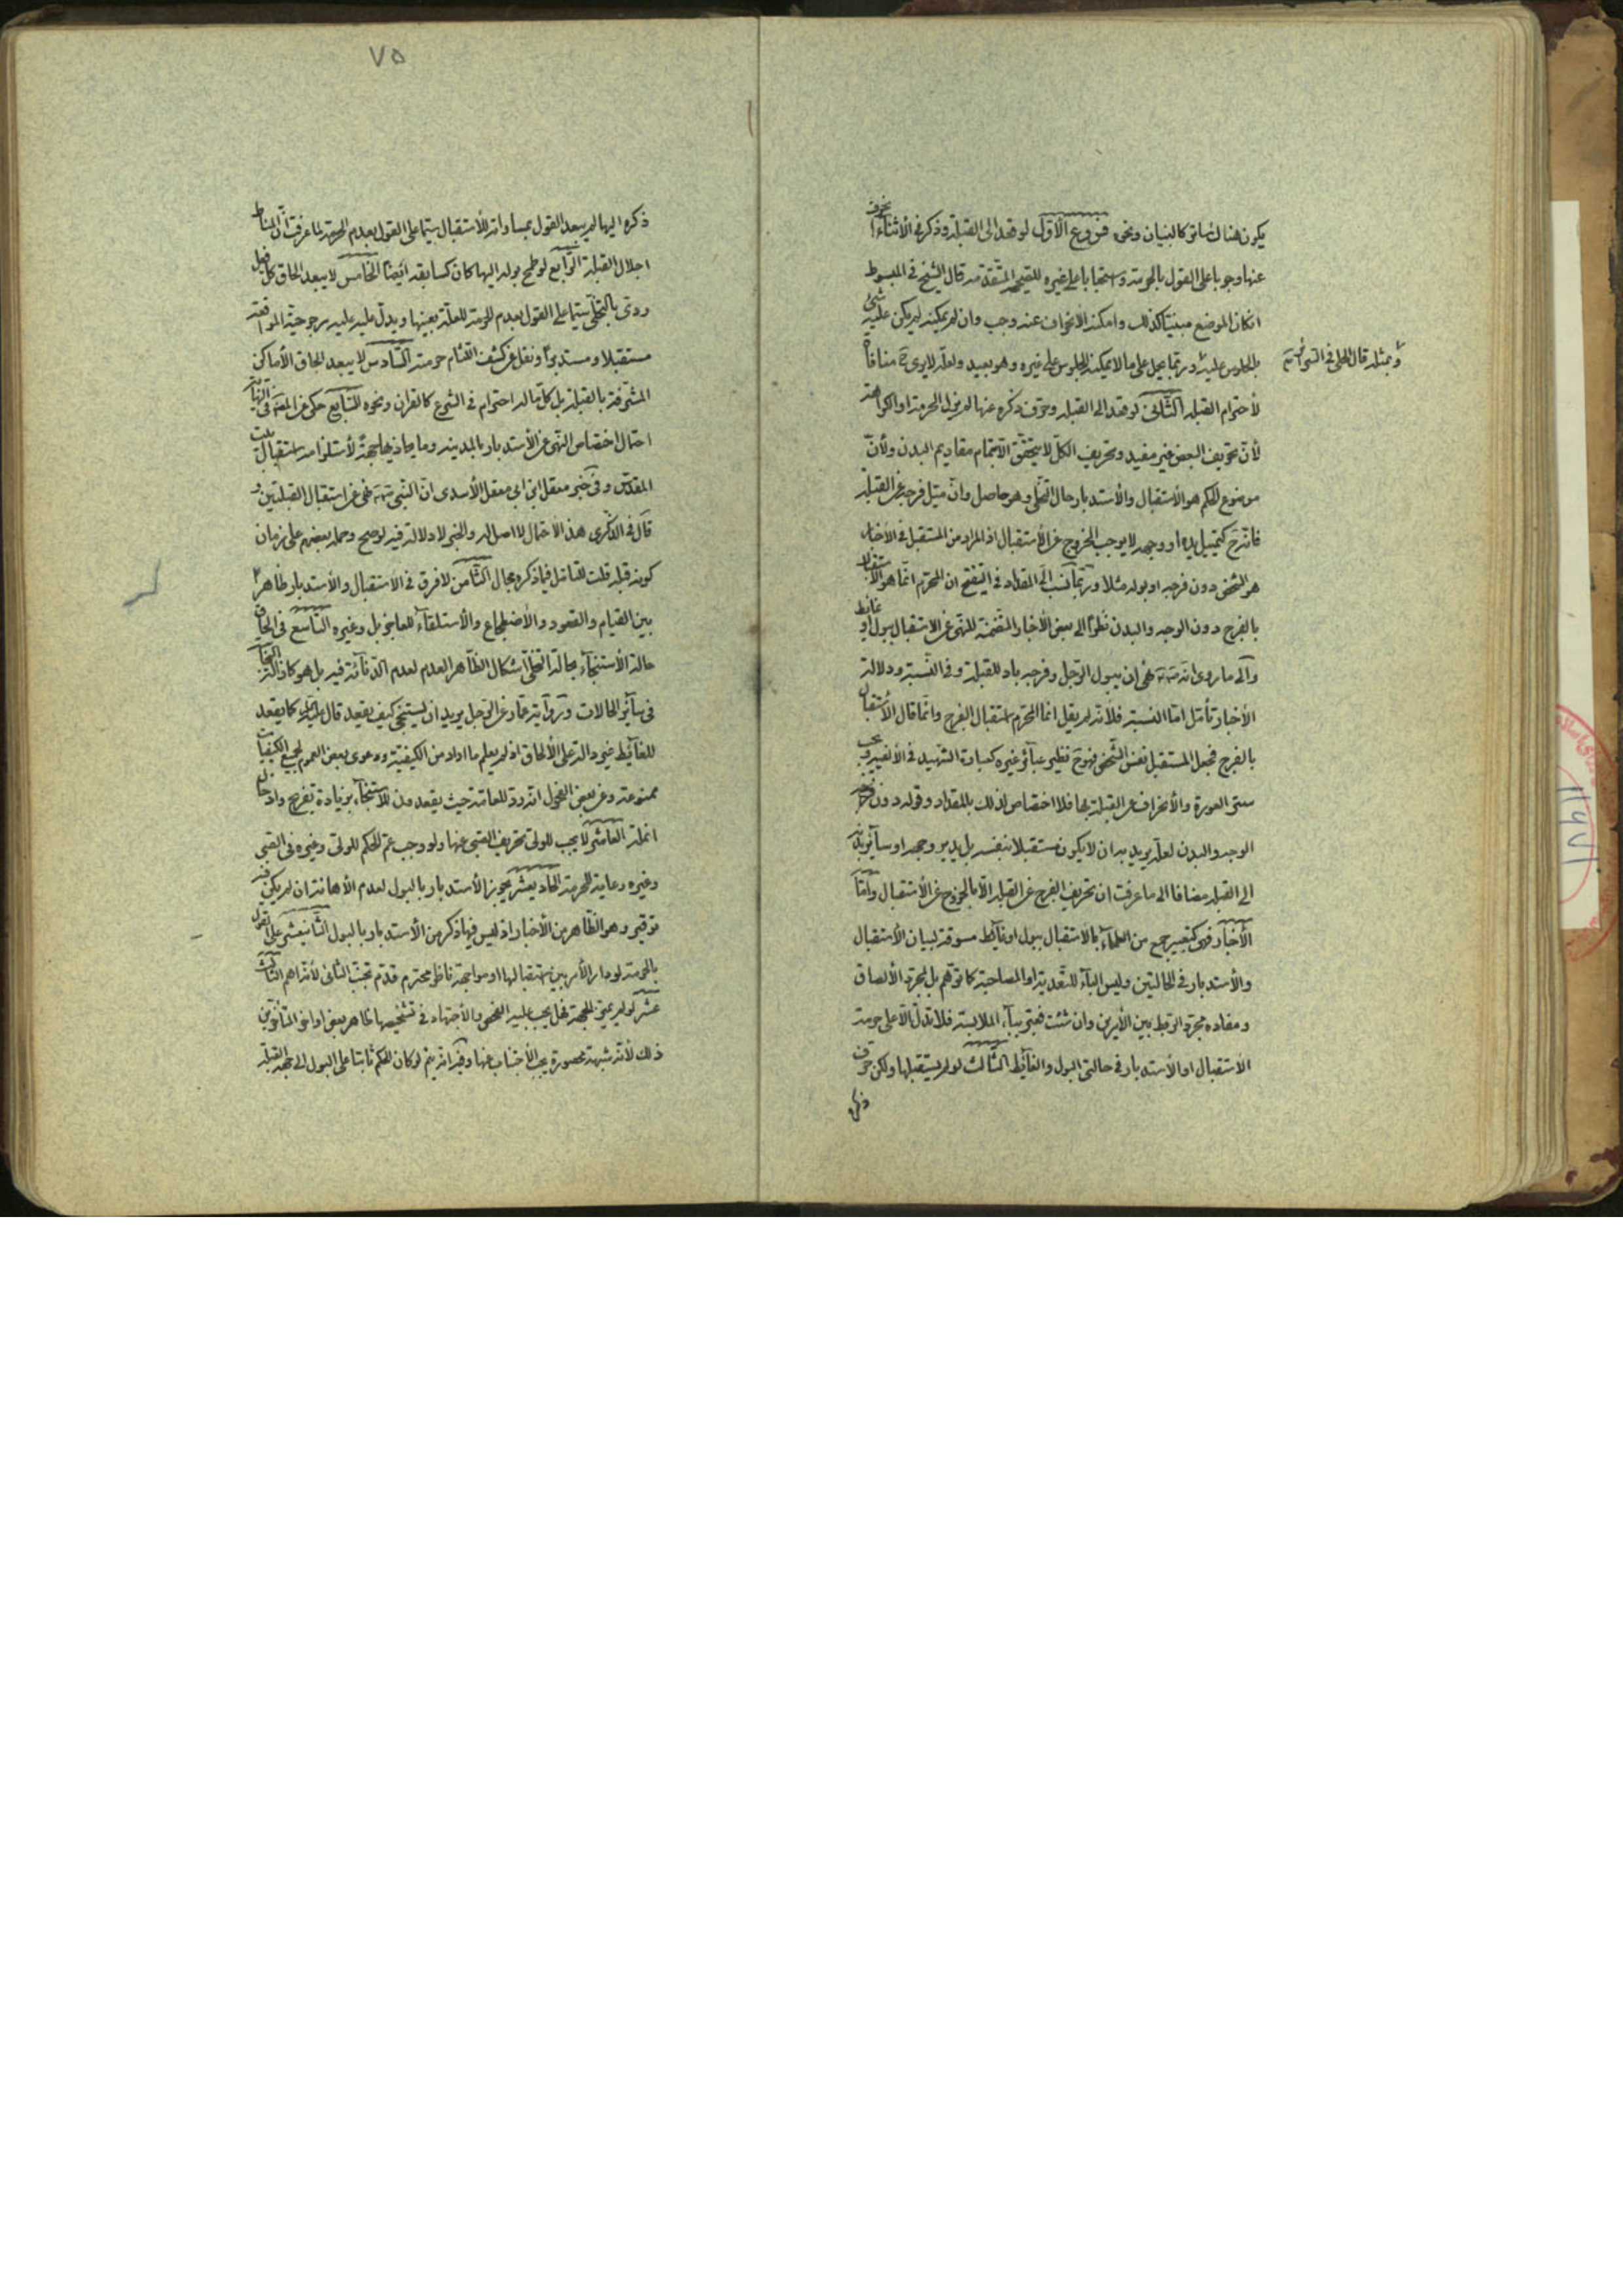 يكون هناك ساتر كالبنيان ونحوه فروع الأوّل لو قعد الى القبلة وذكر في الأثناء انحرف
عنها وجوبا على القول بالحرمة واستحبابا على غيره للتعميم المتقدمة قال الشيخ في المبسوط
انكان الموضع مبنيّا كذلك وامكنه الانحراف عنه وجب وان لم يمكنه لم يكن عليه شئ
بالجلوس عليه وربّما يحمل على ما لا يمكنه الجلوس على غيره وهو بعيد ولعلّه لا يرى ح منافاة
وبمثله قال الحلي في السرائر
لأحترام القبلة الثّاني لو قعد الى القبلة وحرّف ذكره عنها لم يزل الحرمة او الكراهة
لأن تحريف البعض غير مفيد وتحريف الكلّ لا يتحقّق الا بتمام مقاديم البدن ولأنّ
موضوع الحكم هو الأستقبال والأستدبار حال التخلّي وهو حاصل وان ميّل فرجه عن القبلة
فانه ح كتمييل يده او وجهه لا يوجب الخروج عن الأستقبال اذ المراد من المستقبل في الأخبار
هو الشخص دون فرجه او بوله مثلا وربّما نسب الى المقداد في التنقيح ان المحرّم انّما هو الاستقبال
بالفرج دون الوجه والبدن نظرا الى بعض الأخبار المتضمنة للنهي عن الاستقبال ببول او غائط
والى ما روى انه نهى ان يبول الرّجل وفرجه باد للقبلة وفي النسبة ودلالة
الأخبار تأمّل امّا النسبة فلأنّه لم يقل انما المحرّم استقبال الفرج وانّما قال الأستقبال
بالفرج فجعل المستقبل نفس الشخص فهو ح نظير عبائر غيره كعبارة الشهيد في الألفيه ويجب
ستر العورة والأنحراف عن القبلة بها فلا اختصاص لذلك بالمقداد وقوله دون
الوجه والبدن لعلّه يريد به ان لا يكون مستقبلا بنفسه بل بيديه ووجهه او سائر بدنه
الى القبلة مضافا الى ما عرفت ان تحريف الفرج عن القبلة الّا بالخروج عن الأستقبال وامّا
الأخبار فهى كتعبير جمع من العلماء بالاستقبال ببول او غائط مسوقة لبيان الاستقبال
والأستدبار في الحالتين وليس الباء للتعدية او المصاحبة كما توهّم بل لمجرّد الألصاق
ومفاده مجرّد الربط بين الأمرين وان شئت فعبّر بباء الملابسة فلا تدلّ الّا على حرمة
الاستقبال او الأستدبار في حالتى البول والغائط الثالث لو لم يستقبلها ولكن حرّف
ذكره
٧٥
ذكره اليها لم يبعد القول بمساواته للأستقبال سيّما على القول بعدم الحرمة لما عرفت انّ المناط
اجلال القبلة الرّابع لو طمح بوله اليها كان كسابقه ايضا الخامس لا يبعد الحاق كلّ فعل
ردى بالتخلّي سيّما على القول بعدم الحرمة للعلّة بعينها ويدلّ عليه مرجوحيّة المواقعة
مستقبلا ومستدبرا ونقل عن كشف اللثام حرمته السّادس لا يبعد الحاق الأماكن
المشرّفة بالقبلة بل كلّ ما له احترام في الشرع كالقران ونحوه السّابع حكى عن في النهاية
احتمال اختصاص النهى عن الأستدبار بالمدينة وما يحاذيها جهة لأستلزامه استقبال بيت
المقدّس وفي خبر معقل ابن ابى معقل الأسدى انّ النّبي نهى عن استقبال القبلتين و
قال في الذكرى هذا الاحتمال لا اصل له والخبر لا دلالة فيه لو صح وحمله بعضهم على زمان
كونه قبلة قلت للتامّل فيما ذكره مجال الثّامن لا فرق في الاستقبال والأستدبار ظاهرا
بين القيام والقعود والأضطجاع والأستلقاء للعاجز بل وغيره التّاسع في الحاق
حالة الأستنجاء بحالة التخلّي اشكال الظاهر العدم لعدم الدناءة فيه بل هو كازالة النجاسة
في سائر الحالات ورواية عمّار عن الرّجل يريد ان يستنجى كيف يقعد قال كما يقعد
للغائط غير دالّة على الألحاق اذ لم يعلم ما اراد من الكيفيّة ودعوى بعض العموم لجميع الكيفيات
ممنوعة وعن بعض الفحول انه ردّ للعامّة حيث يقعدون للأستنجاء بزيادة تفريج وادخال
انملة العاشر لا يجب للولىّ تحريف الصّبى عنها ولو وجب عمّ الحكم للولى وغيره في الصّبى
وغيره رعاية للحرمة الحاديعشر يجوز الأستدبار بالبول لعدم الأهانة ان لم يكن فيه
توقير وهو الظّاهر من الأخبار اذ ليس فيها ذكر من الأستدبار بالبول الثّانيعشر على القول
بالحرمة لو دار الأمر بين استقبالها او مواجهة ناظر محترم قدّم تجنّب الثّانى لأنّه اهمّ الثّالث
عشر لو لم يميّز الجهة فهل يجب عليه الفحص والأجتهاد في تشخيصها ظاهر بعض اواخر المتأخّرين
ذلك لأنّه شبهة محصورة يجب الأجتناب عنها وفيه انه يتم لو كان الحكم ثابتا على البول الى جهة القبلة